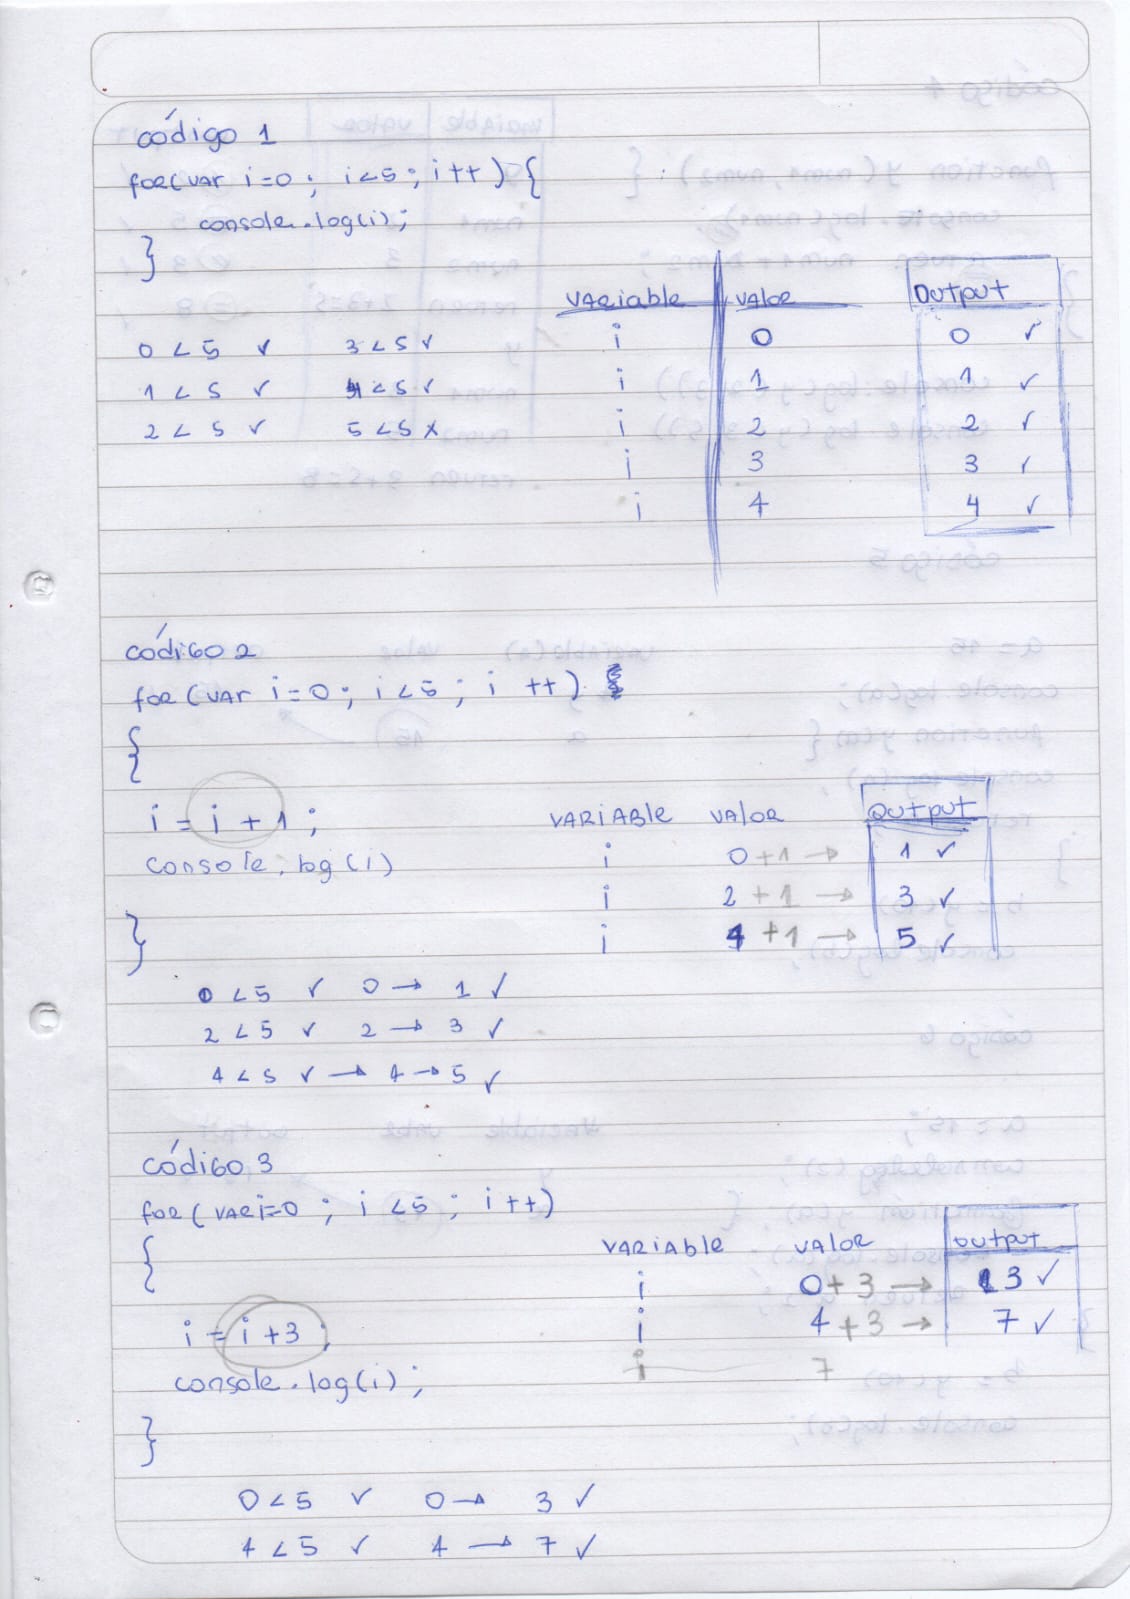 código 1
for(var i=0 ; i<5 ; i++) {
console.log(i);
}
VARiable VALOR OUTPUT
i 0 0 ✓
i 1 1 ✓
i 2 2 ✓
i 3 3 ✓
i 4 4 ✓
0 < 5 ✓ 3 < 5 ✓
1 < 5 ✓ 4 < 5 ✓
2 < 5 ✓ 5 < 5 x
código 2
for (var i=0 ; i<5 ; i ++)
{
i = i + 1 ;
console.log(i)
}
VARIABLE VALOR OUTPUT
i 0 +1 → 1 ✓
i 2 +1 → 3 ✓
i 4 +1 → 5 ✓
0 < 5 ✓ 0 → 1 ✓
2 < 5 ✓ 2 → 3 ✓
4 < 5 ✓ → 4 → 5 ✓
código 3
for(vari=0 ; i <5 ; i++)
{
i = i +3 ;
console.log(i) ;
}
VARIABLE VALOR OUTPUT
i 0+ 3 → 3 ✓
i 4 +3 → 7 ✓
i 7
0 < 5 ✓ 0 → 3 ✓
4 < 5 ✓ 4 → 7 ✓